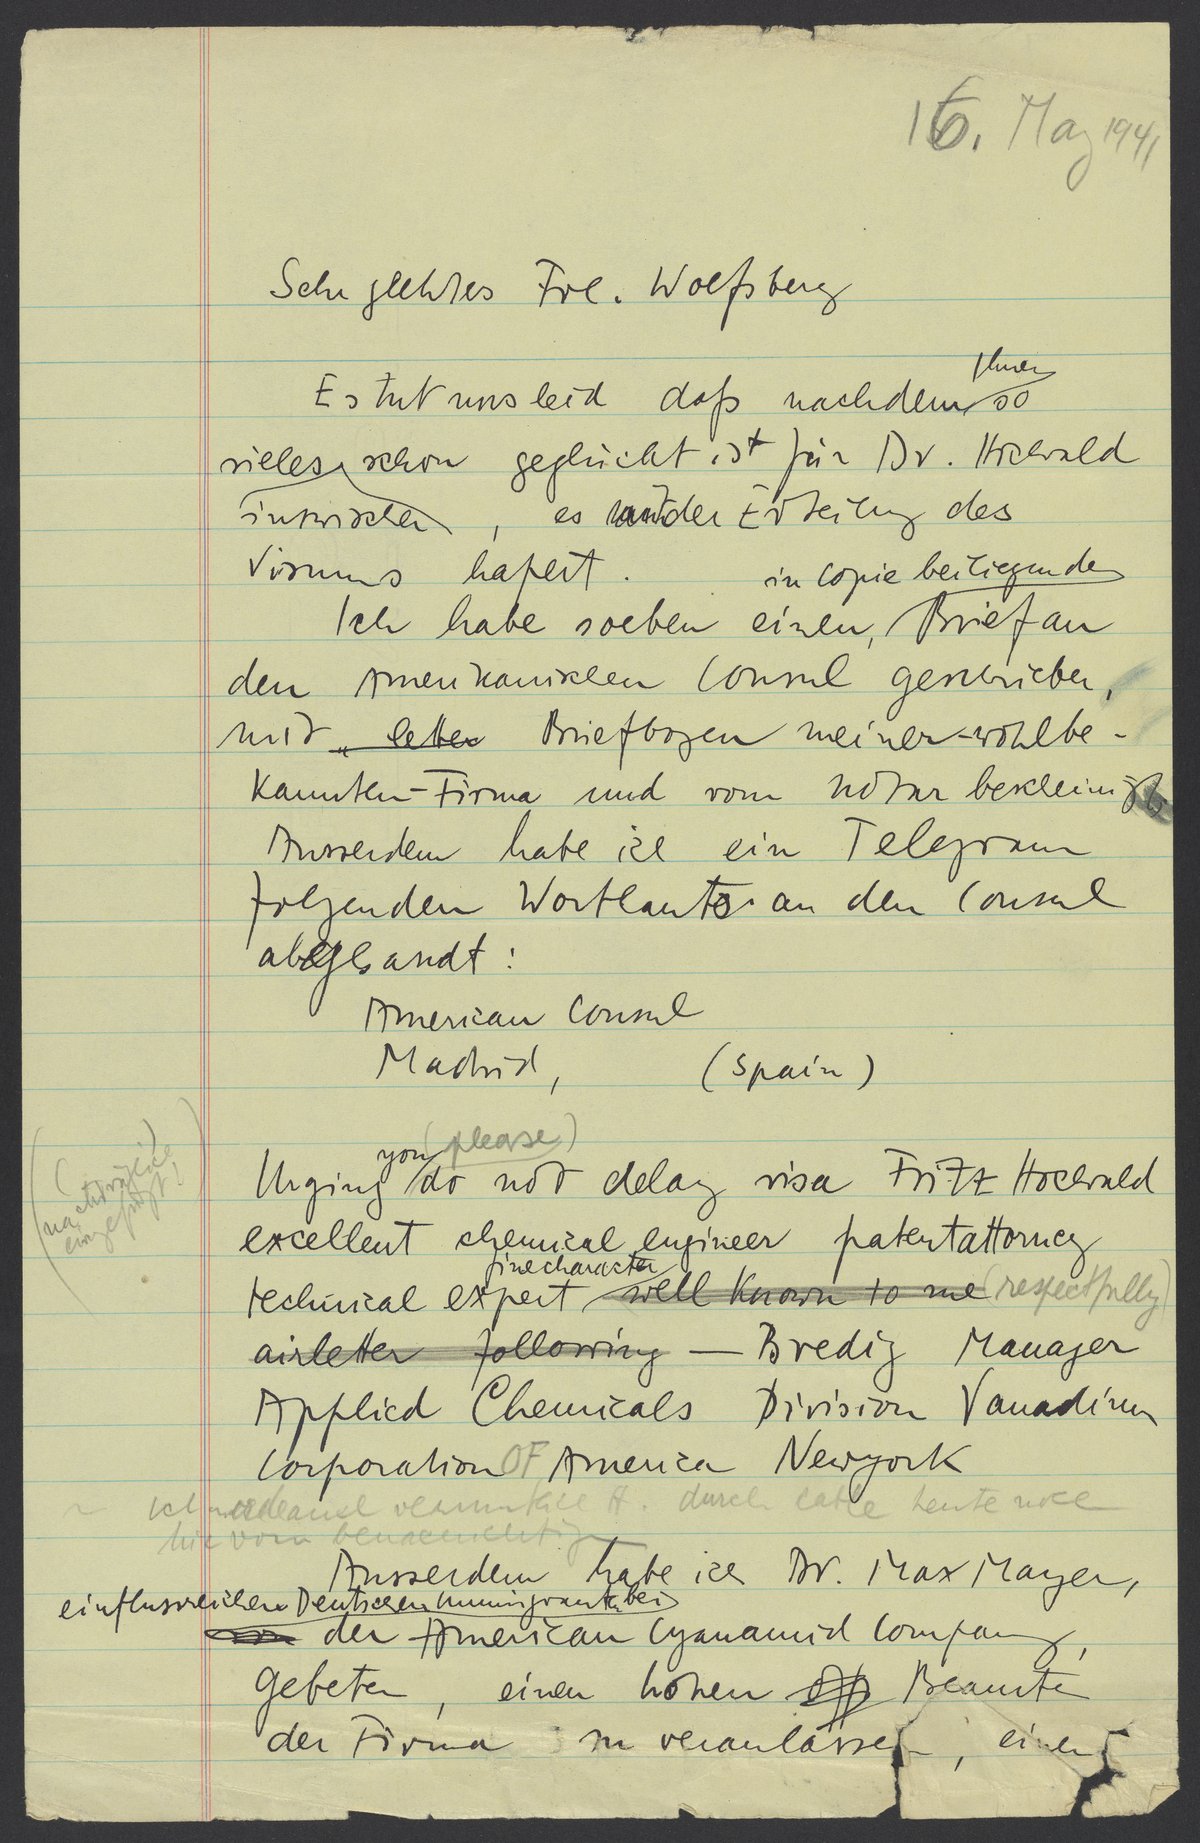 16. May 1941
Sehr geehrtes Frl. Wolfsberg
Es tut uns leid daß nachdem Ihnen so
vieles schon geglückt ist für Dr. Hochwald
inzwischen, es an der Erteilung des
Visums hapert.
in Copie beiliegenden
Ich habe soeben einen, Brief an
den Amerikanischen Consul geschrieben,
mit letter Briefbogen meiner wohlbe-
kannten Firma und vom Notar bescheinigt.
Ausserdem habe ich ein Telegram
folgenden Wortlauts an den Consul
abgesandt:
American Consul
Madrid, (Spain)
you (please)
Urging do not delay visa Fritz Hochwald
excellent chemical engineer patentattorney
fine character
technical expert well known to me (respectfully)
airletter following — Bredig Manager
Applied Chemicals Division Vanadium
Corporation OF America Newyork
(nachträglich
eingefügt!)
H. durch cable heute noch
hiervon benachrichtigen
Ausserdem habe ich Dr. Max Mayer,
einflussreichen Deutschen Immigranten bei
der American Cyanamid Company,
gebeten, einen hohen Beamten
der Firma zu veranlassen, einen